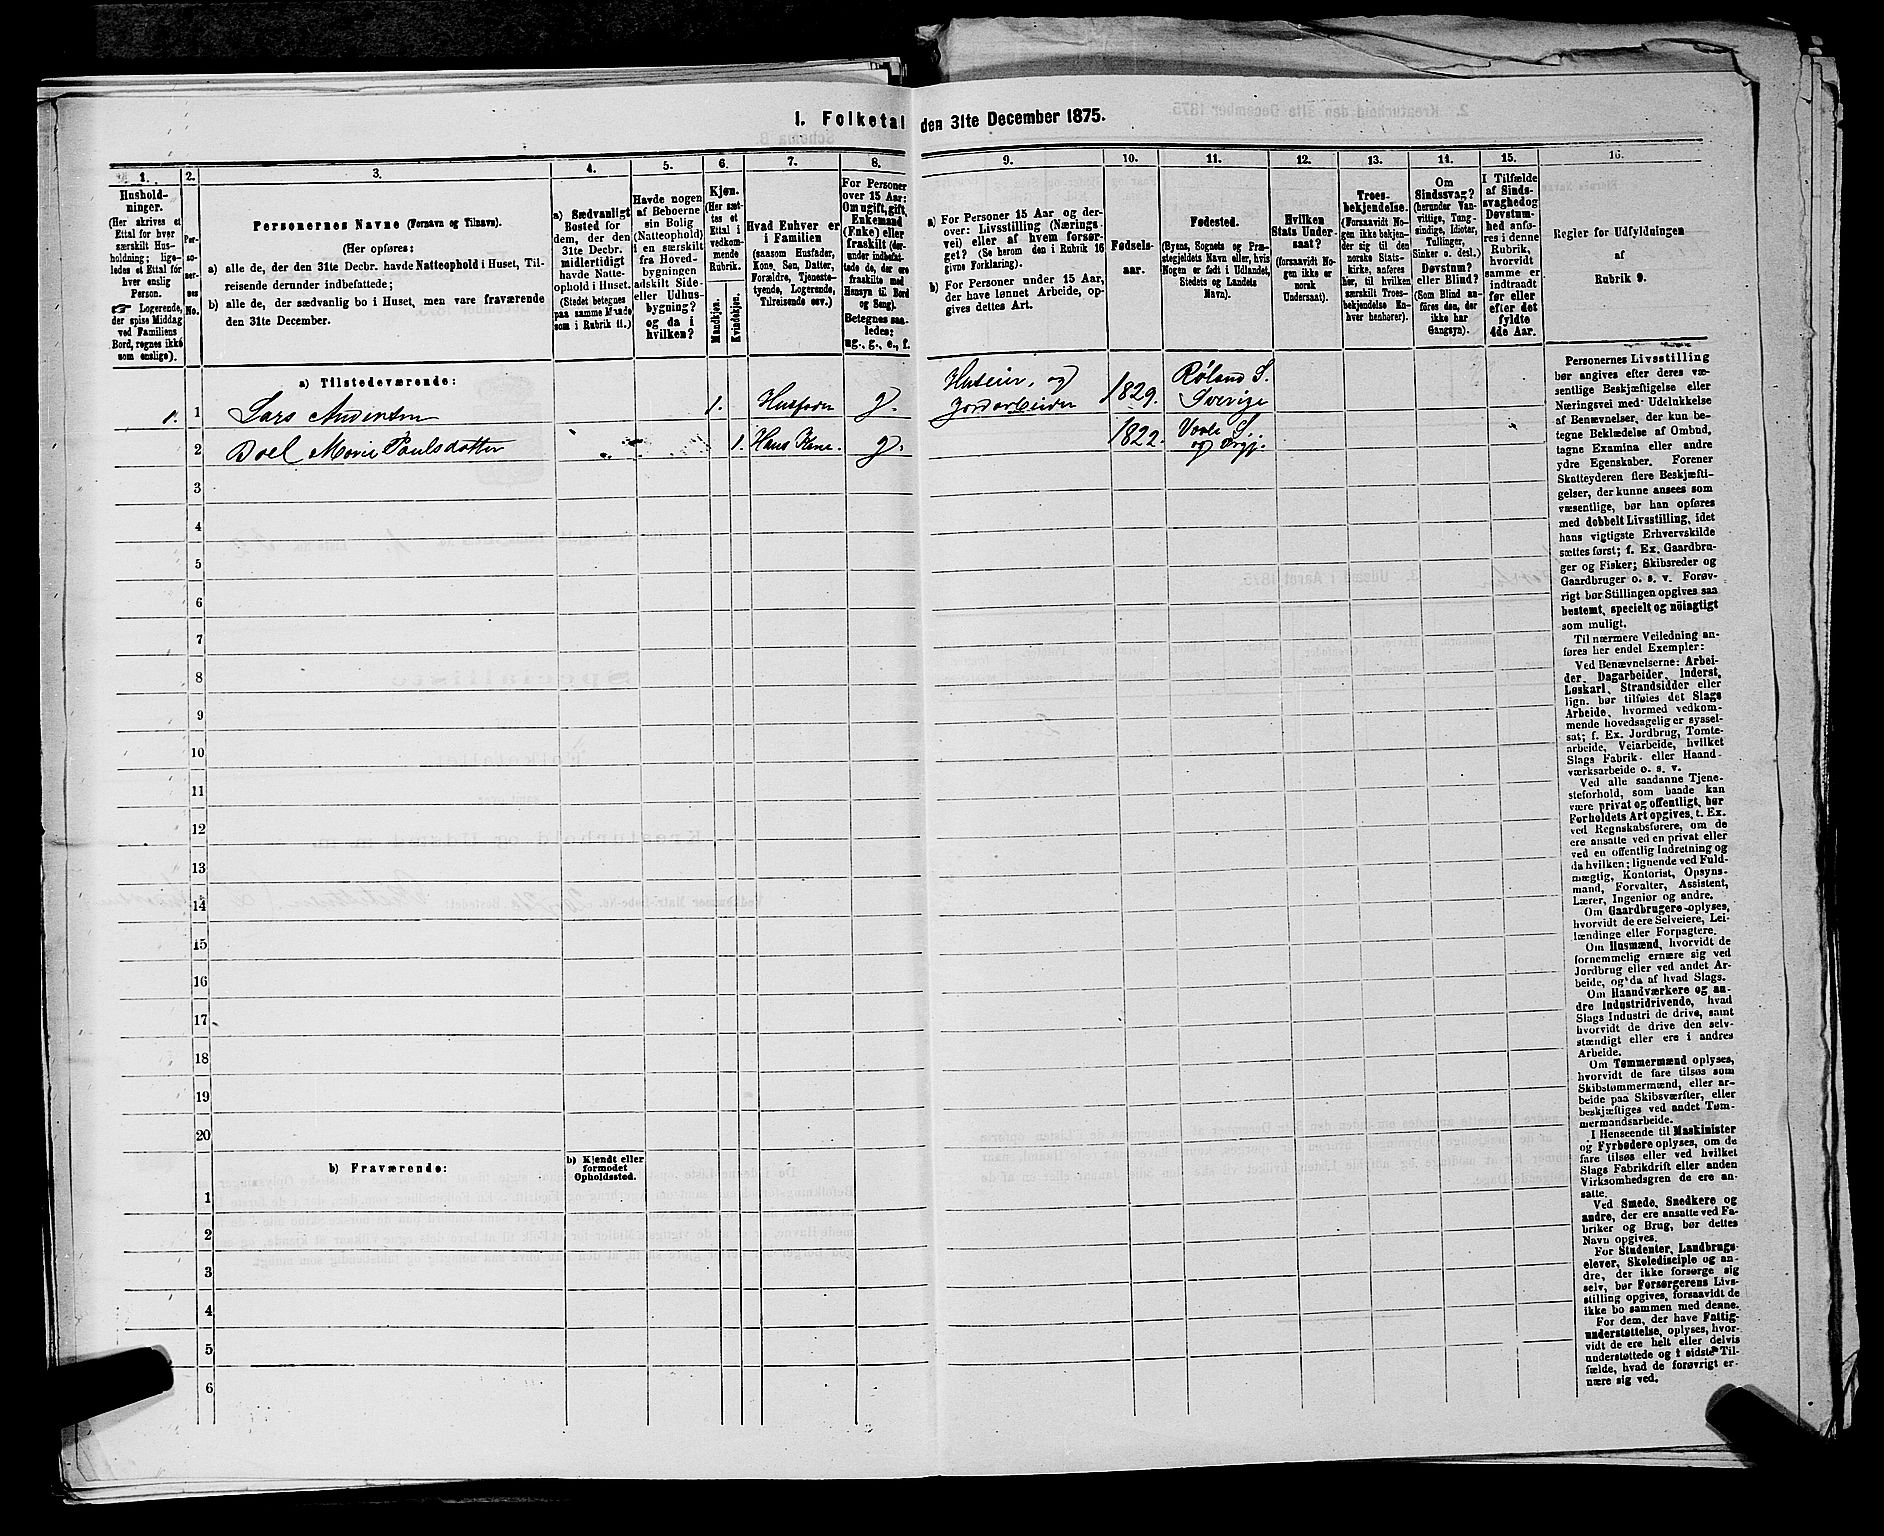 I. Folketal den 31te December 1875.
1. 2. 3. 4. 5. 6. 7. 8. 9. 10. 11. 12. 13. 14. 15. 16.
Hushold-
ninger.
(Her skrives et
Ettal for hver
særskilt Hus-
holdning; lige-
ledes et Ettal for
hver enslig
Person.
☞ Logerende,
der spise Middag
ved Familiens
Bord, regnes ikke
som enslige).
Per-
so-
ner-
nes
No.
Personernes Navne (Fornavn og Tilnavn).
(Her opføres:
a) alle de, der den 31te Decbr. havde Natteophold i Huset, Til-
reisende derunder indbefattede;
b) alle de, der sædvanlig bo i Huset, men vare fraværende
den 31te December.
a) Sædvanligt
Bosted for
dem, der den
31te Decbr.
midlertidigt
havde Natte-
ophold i Huset.
(Stedet betegnes
paa samme Maade
som i Rubrik 11.)
Havde nogen
af Beboerne
sin Bolig
(Natteophold)
i en særskilt
fra Hoved-
bygningen
adskilt Side-
eller Udhus-
bygning?
og da i
hvilken?
Kjøn.
(Her sæt-
tes et
Ettal i
vedkom-
mende
Rubrik.
Mandkjøn.
Kvindekjøn.
Hvad Enhver er
i Familien
(saasom Husfader,
Kone, Søn, Datter,
Forældre, Tjeneste-
tyende, Logerende,
Tilreisende osv.)
For Personer
over 15 Aar:
Om ugift, gift,
Enkemand
(Enke) eller
fraskilt (der-
under indbefat-
tede de, der ere
fraskilte med
Hensyn til Bord
og Seng).
Betegnes saa-
ledes:
ug., g., e., f.
a) For Personer 15 Aar og der-
over: Livsstilling (Nærings-
vei) eller af hvem forsør-
get? (Se herom den i Rubrik 16
givne Forklaring).
b) For Personer under 15 Aar,
der have lønnet Arbeide, op-
gives dettes Art.
Fødsels-
aar.
Fødested.
(Byens, Sognets og Præ-
stegjeldets Navn eller, hvis
Nogen er født i Udlandet,
Stedets og Landets
Navn).
Hvilken
Stats Under-
saat?
(forsaavidt No-
gen ikke er
norsk
Undersaat).
Troes-
bekjendelse.
(Forsaavidt No-
gen ikke bekjen-
der sig til den
norske Stats-
kirke, anføres
her, til hvilken
særskilt Troes-
bekjendelse En-
hver henhører).
Om
Sindssvag?
(herunder Van-
vittige, Tung-
sindige, Idioter,
Tullinger,
Sinker o. desl.)
Døvstum?
eller Blind?
(Som Blind an-
føres den, der
ikke har
Gangsyn).
I Tilfælde
af Sinds-
svaghed og
Døvstum-
hed anfø-
res i denne
Rubrik,
hvorvidt
samme er
indtraadt
før eller
efter det
fyldte
4de Aar.
Regler for Udfyldningen
af
Rubrik 9.
a) Tilstedeværende:
1. 1 Lars Andersen 1. Husfader g. Huseier og Jordarbeider 1829. Röland S. Sverige
2 Boel Marie Paulsdatter 1. Hans Kone g. 1822. Vaale S. og Prgj.
3
4
5
6
7
8
9
10
11
12
13
14
15
16
17
18
19
20
b) Fraværende:
b) Kjendt eller
formodet
Opholdssted.
1
2
3
4
5
6
Personernes Livsstilling
bør angives efter deres væ-
sentlige Beskjæftigelse eller
Næringsvei med Udelukkelse
af Benævnelser, der kun be-
tegne Beklædelse af Ombud,
tagne Examina eller andre
ydre Egenskaber. Forener
Skatteyderen flere Beskjæfti-
gelser, der kunne ansees som
væsentlige, bør han opføres
med dobbelt Livsstilling, idet
hans vigtigste Erhvervskilde
sættes først; f. Ex. Gaardbru-
ger og Fisker; Skibsreder og
Gaardbruger o. s. v. Forøv-
rigt bør Stillingen opgives saa
bestemt, specielt og nöiagtigt
som muligt.
Til nærmere Veiledning an-
føres her endel Exempler:
Ved Benævnelserne: Arbei-
der, Dagarbeider, Inderst,
Løskarl, Strandsidder eller
lign. bør tilføies det Slags
Arbeide, hvormed vedkom-
mende hovedsagelig er syssel-
sat; f. Ex. Jordbrug, Tomte-
arbeide, Veiarbeide, hvilket
Slags Fabrik- eller Haand-
værksarbeide o. s. v.
Ved alle saadanne Tjene-
steforhold, som baade kan
være privat og offentligt, bør
Forholdets Art opgives, t. Ex.
ved Regnskabsførere, om de
ere ansatte ved en privat eller
ved en offentlig Indretning og
da hvilken; lignende ved Fuld-
mægtig, Kontorist, Opsyns-
mand, Forvalter, Assistent,
Lærer, Ingeniør og andre.
Om Gaardbrugere oplyses,
hvorvidt de ere Selveiere, Lei-
lændinge eller Forpagtere.
Om Husmænd, hvorvidt de
fornemmelig ernære sig ved
Jordbrug eller ved andet Ar-
beide, og da af hvad Slags.
Om Haandværkere og an-
dre Industridrivende, hvad
Slags Industri de drive, samt
hvorvidt de drive den selv-
stændigt eller ere i andres
Arbeide.
Om Tømmermænd oplyses,
hvorvidt de fare tilsøs som
Skibstømmermænd, eller ar-
beide paa Skibsværfter, eller
beskjæftiges ved andet Tøm-
mermandsarbeide.
I Henseende til Maskinister
og Fyrbødere oplyses, om de
fare tilsøs eller ved hvilket
Slags Fabrikdrift eller anden
Virksomhedsgren de ere an-
satte.
Ved Smede, Snedkere og
andre, der ere ansatte ved Fa-
briker og Brug, bør dettes
Navn opgives.
For Studenter, Landbrugs-
elever, Skoledisciple og an-
dre, der ikke forsørge sig
selv, bør Forsørgerens Livs-
stilling opgives, forsaavidt de
ikke bo sammen med denne.
For dem, der have Fattig-
understøttelse, oplyses, hvor-
vidt de ere helt eller delvis
understøttede og i sidste Til-
fælde, hvad de forøvrigt er-
nære sig ved.